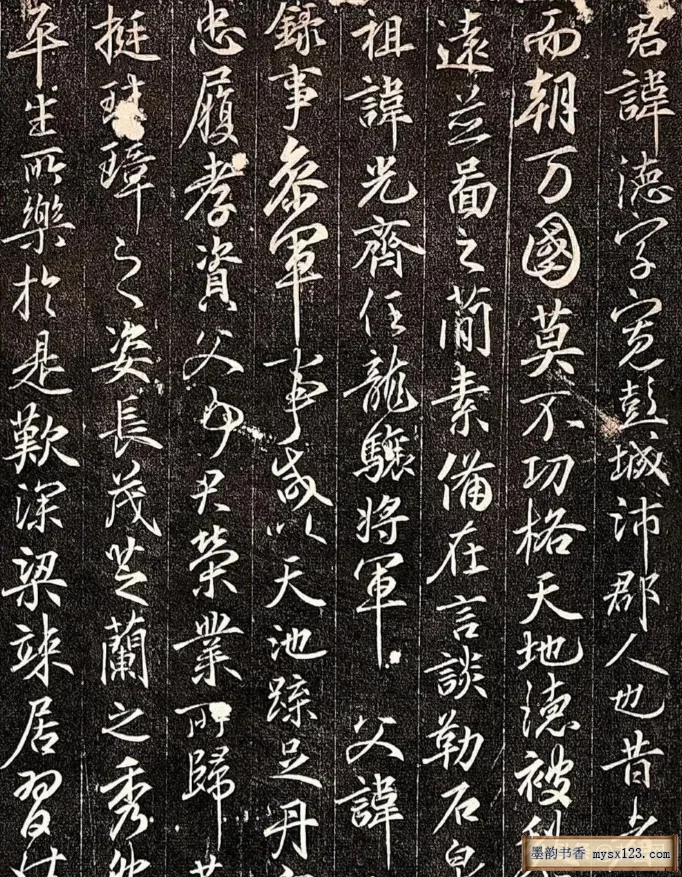 君諱德字寬彭城沛郡人也昔
而朝万國莫不功格天地德被
遠並啚之蕳素備在言談勒石
祖諱光齊任龍驤將軍 父諱
錄事叅軍事咸以天池踠足丹
忠履孝資父事君榮業所歸
挺珪璋之姿長茂芝蘭之秀
平生所樂於是歎深梁竦居習
墨韵书香 mysx123.com